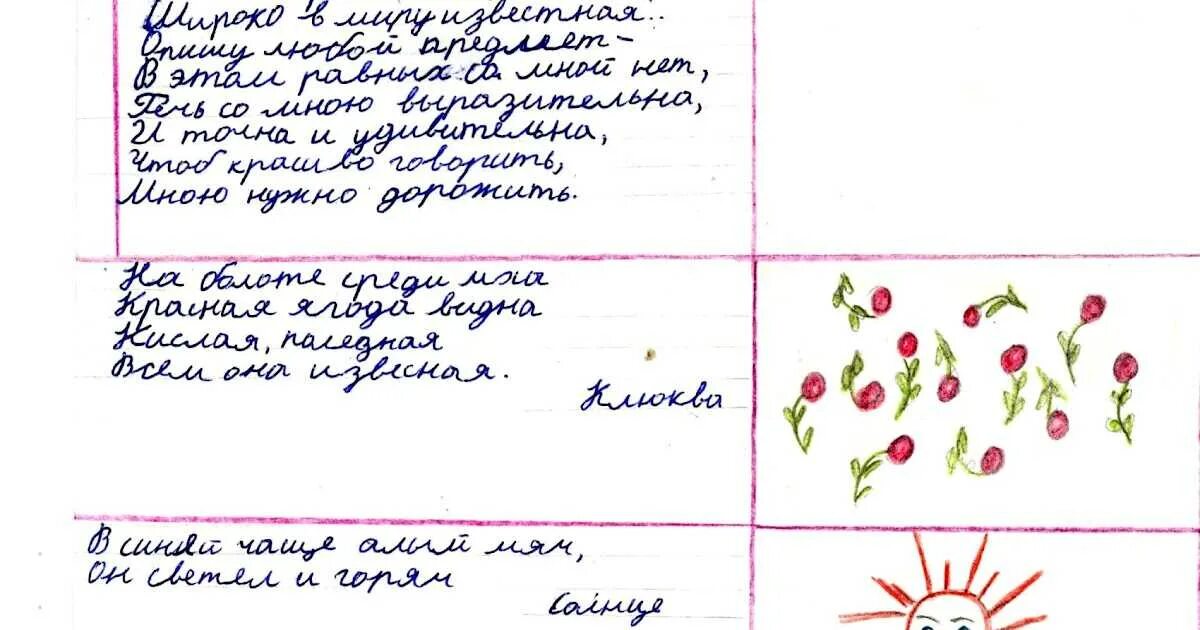 Широко в миру известная..
Опишу любой предмет-
В этом равных со мной нет,
Речь со мною выразительна,
И точна и удивительна,
Чтоб красиво говорить,
Мною нужно дорожить.
На болоте среди мха
Красная ягода видна
Кислая, паледная
Всем она извесная.
Клюква
В синей чаще алый мяч,
Он светел и горяч
Солнце